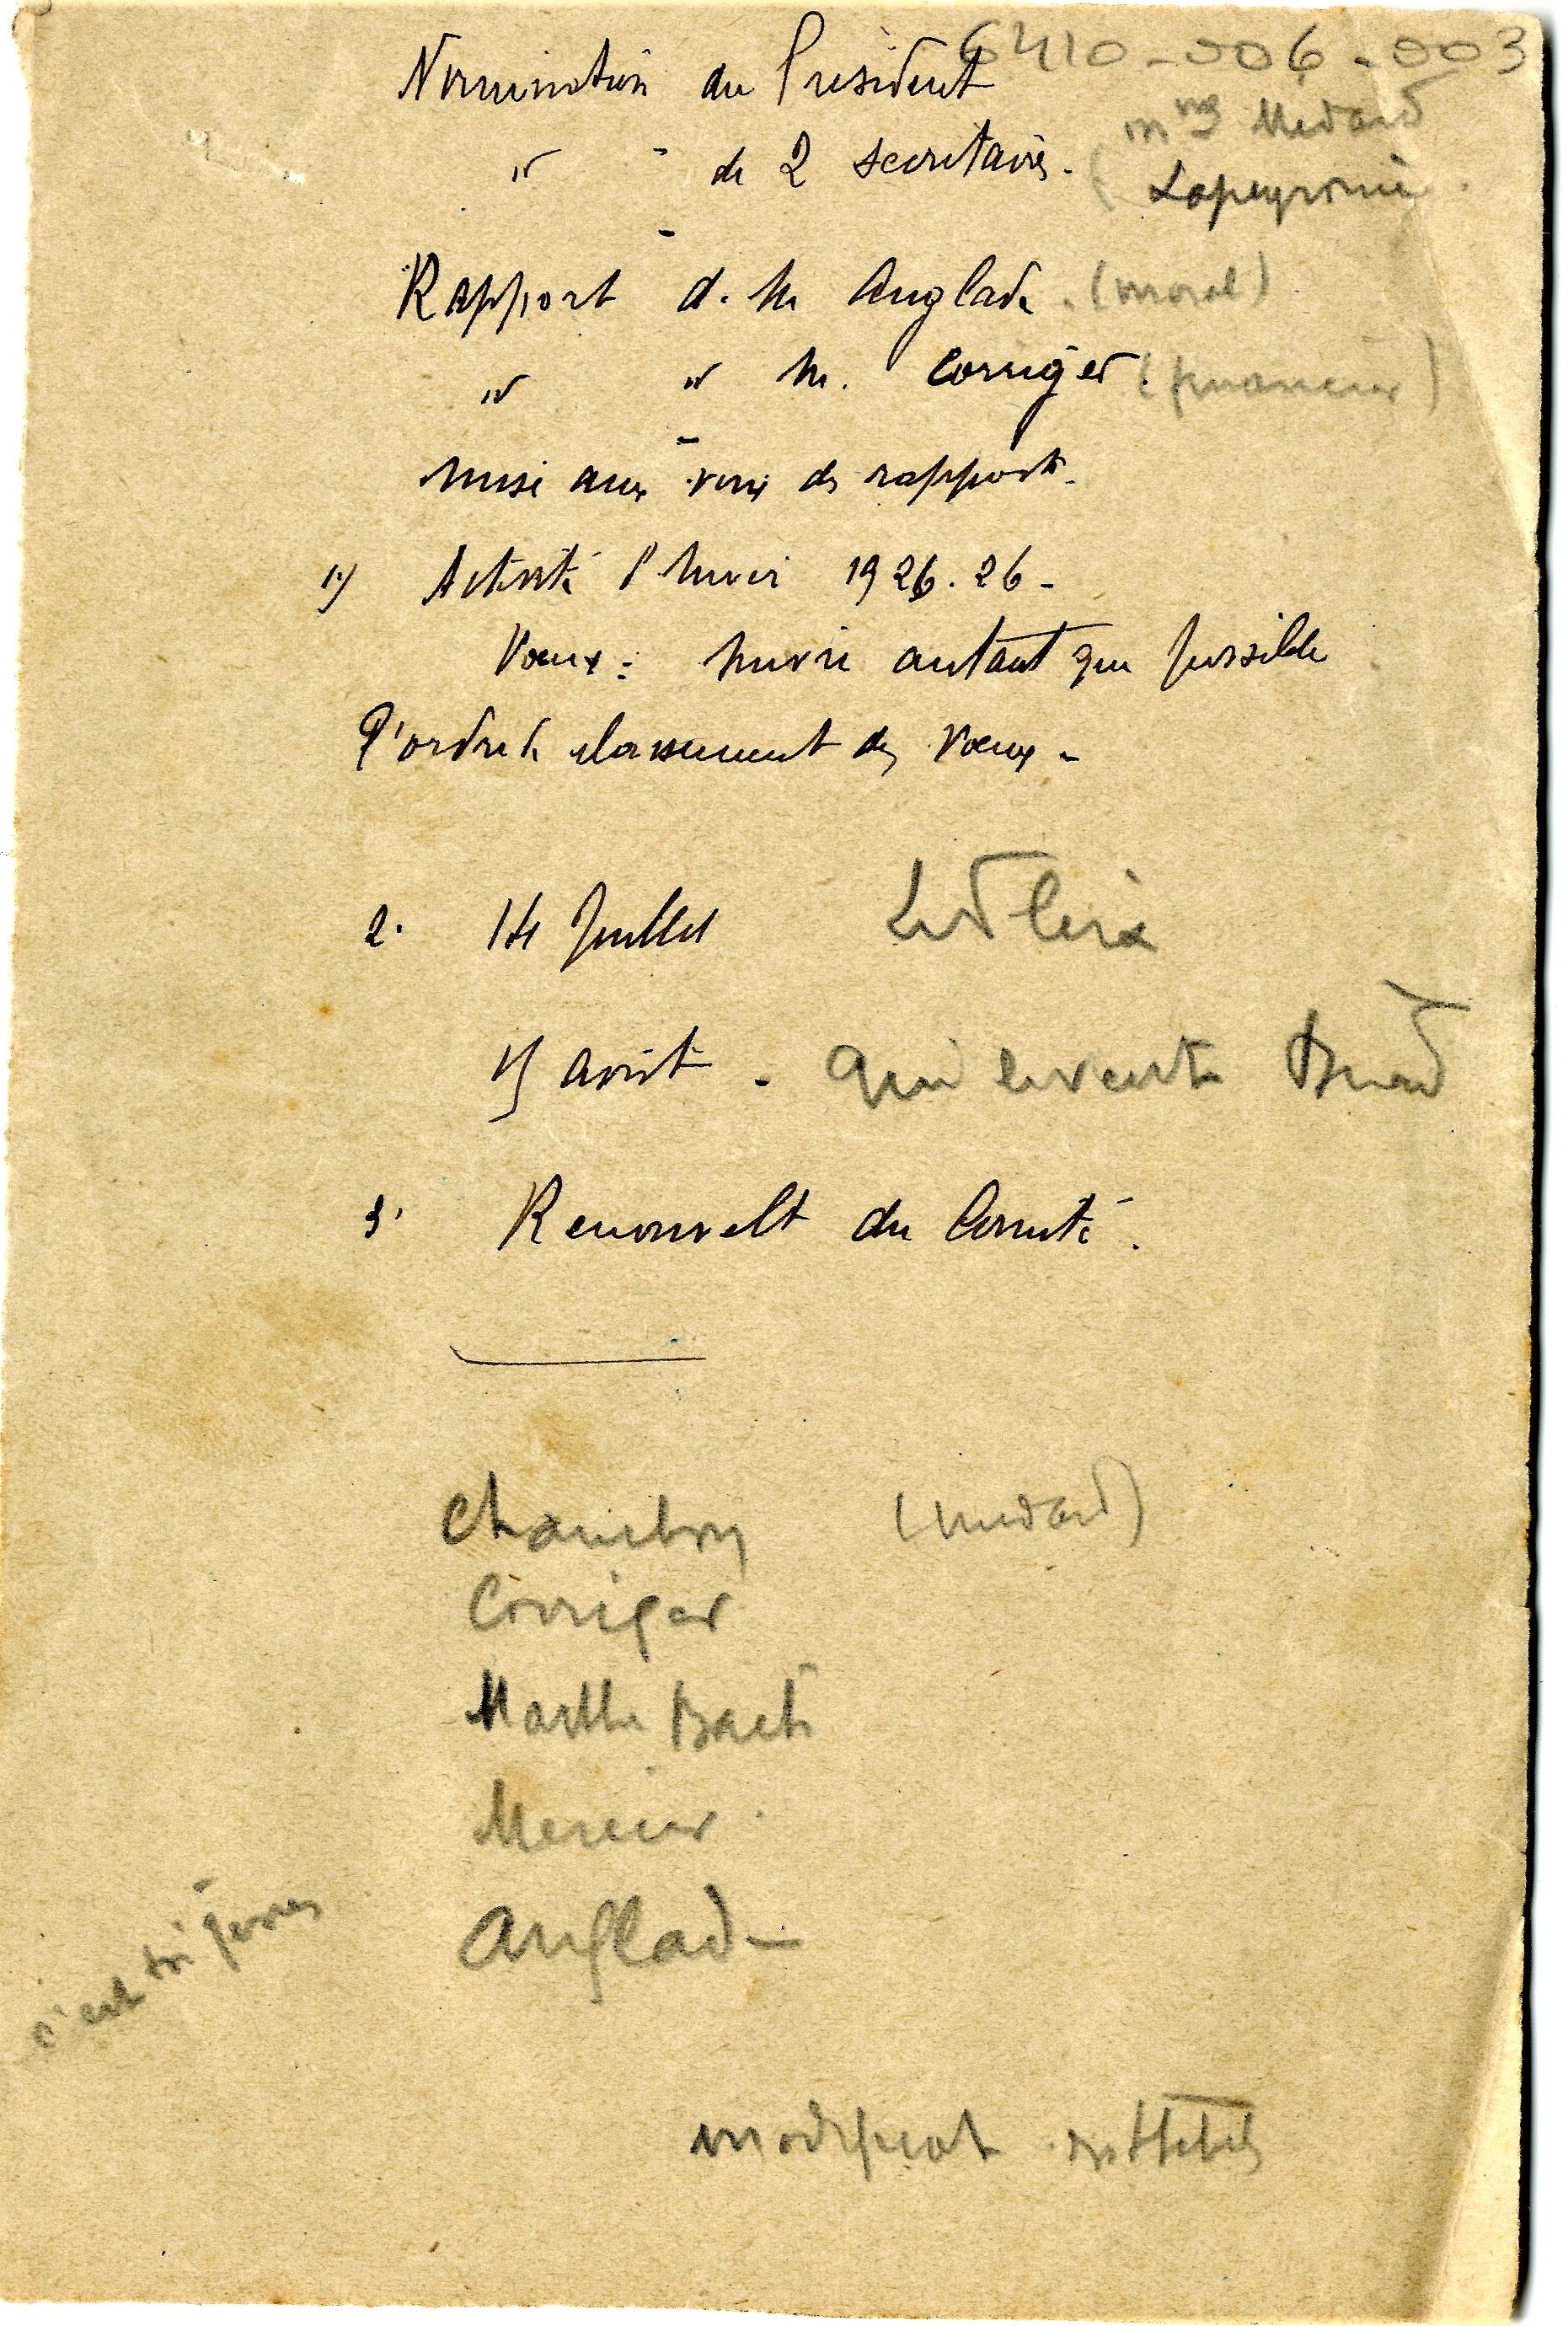 6410-006-003
Nomination du Président
" de 2 secrétaires. mmes Medard
Lapeyronie.
Rapport d. M Anglade. (moral)
" " M. Corriger. (financier)
mise aux voix des rapports.
1°) Activité l'hiver 1926.26-
Voeux: suivre autant que possible
l'ordre de classement des voeux.
2. 14 Juillet
15 août.
3° Renouvelt du Comité.
Chambon (Medard)
Corriger
Marthe
Mercier.
Anglade
c'est
modificat